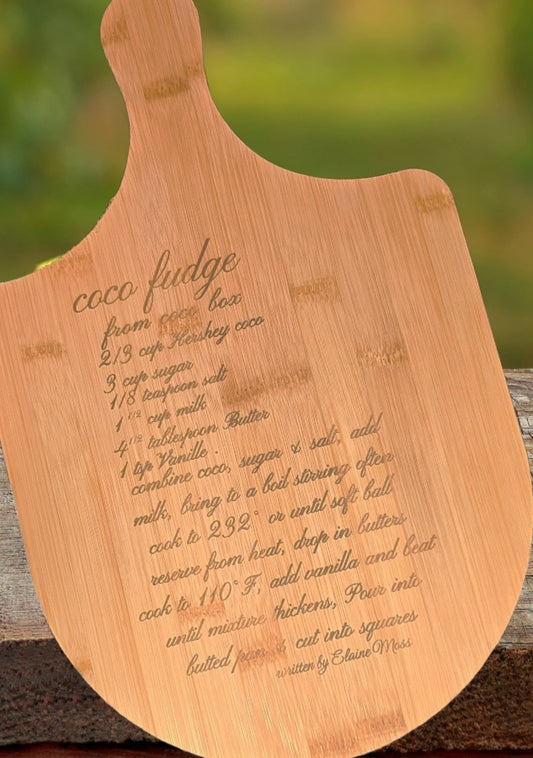 coco fudge
from coco box
2/3 cup Hershey coco
3 cup sugar
1/8 teaspoon salt
1 1/2 cup milk
4 1/2 tablespoon Butter
1 tsp Vanille .
combine coco, sugar & salt, add
milk, bring to a boil stirring often
cook to 232° or until soft ball
reserve from heat, drop in butters
cook to 110°F, add vanilla and beat
until mixture thickens, Pour into
butted pan & cut into squares
written by Elaine Moss